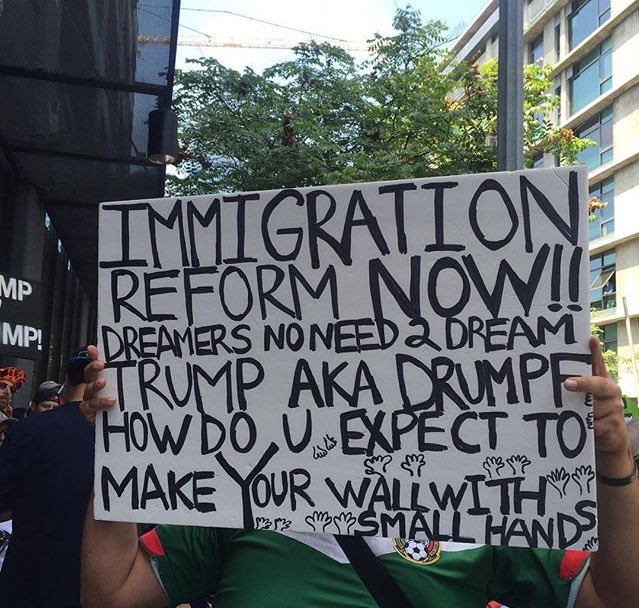 IMMIGRATION
REFORM NOW!!
DREAMERS NO NEED 2 DREAM
TRUMP AKA DRUMPF
HOW DO U EXPECT TO
MAKE YOUR WALL WITH
SMALL HANDS
MP
MP!